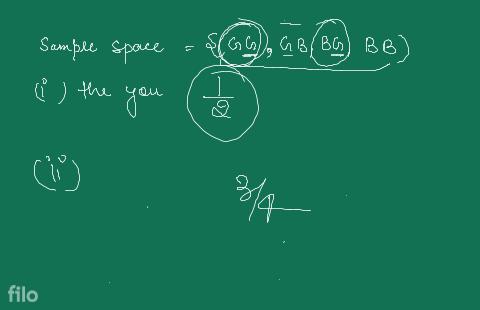 Sample space = { GG, GB, BG, BB}
(i) the you 1/2
(ii)
3/4
filo